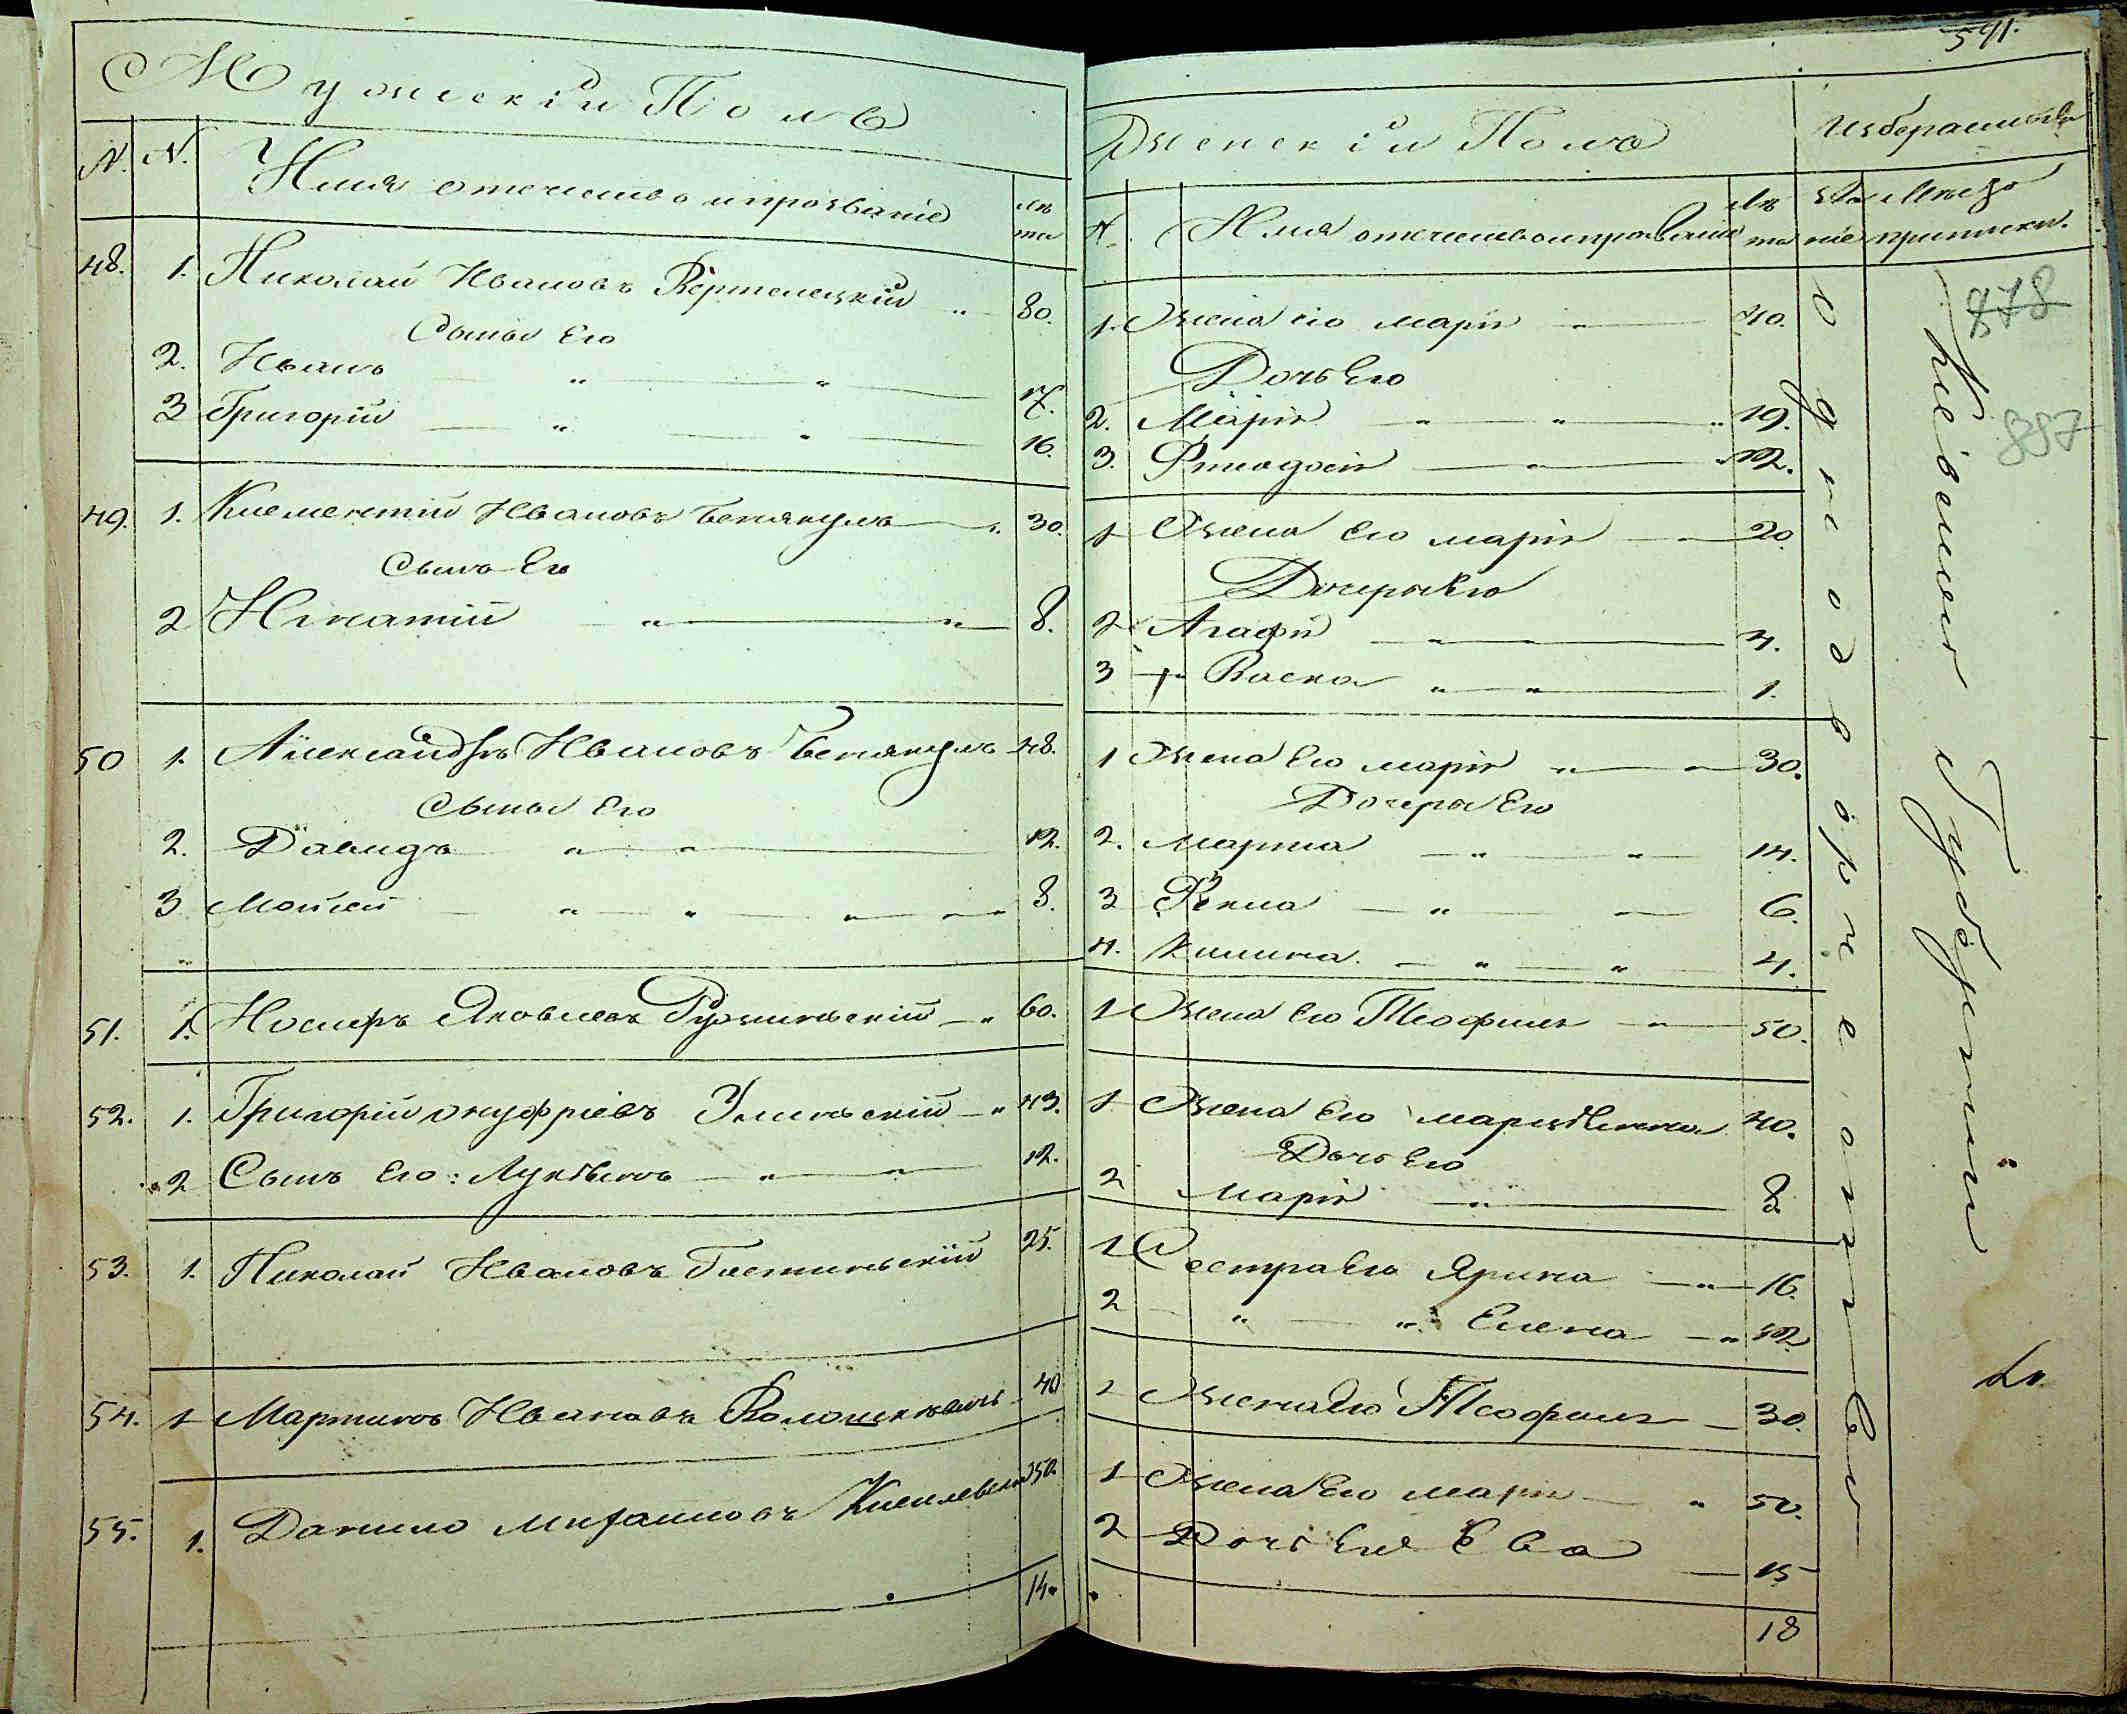 Мужескій Полъ
N. N. Имя отечество ипрозваніе лѣта
48. 1. Николай Ивановъ Вертелецкій 80.
Сыны Его
2. Иванъ 17.
3 Григорій 16.
49. 1. Климентій Ивановъ 30.
Сынъ Его
2 Игнатій 8.
50 1. Александръ Ивановъ 48.
Сыны Его
2. Давидъ 12.
3 Мойсей 8.
51. 1. Іосифъ Яковлевъ 60.
52. 1. Григорій Онуфріевъ Улинскій 43.
2 Сынъ Его: Лукіянъ 12.
53. 1. Николай Ивановъ Гостинскій 25.
54. 1 Мартинъ Ивановъ 40
55. 1. Данило Михайловъ 50.
14.
541.
Женскій Полъ
Избраніе
N. Имя отечествоипрозваніе лѣта званіе Мѣсто приписки.
878
887
1. Жена его марія 40.
Дочь Его
2. Марія 19.
3. Феодосія 12.
1 Жена Его марія 20
Дочеры Его
2 Агафія 4.
3 Васка 1.
1 Жена Его марія 30.
Дочеры Его
2. Марта 14.
3 Фекла 6.
4. Килина 4.
1 Жена Его Теофиля 50.
1 Жена Его марціянна 40.
Дочь Его
2 Марія 8
1 Сестра Его Ярина 16.
2 " " Елена 12
1 Жена Его Теофиля 30.
1 Жена Его марія 50.
2 Дочь Его Ева 15
18
Однодворческаго
Кіевской Губерніи